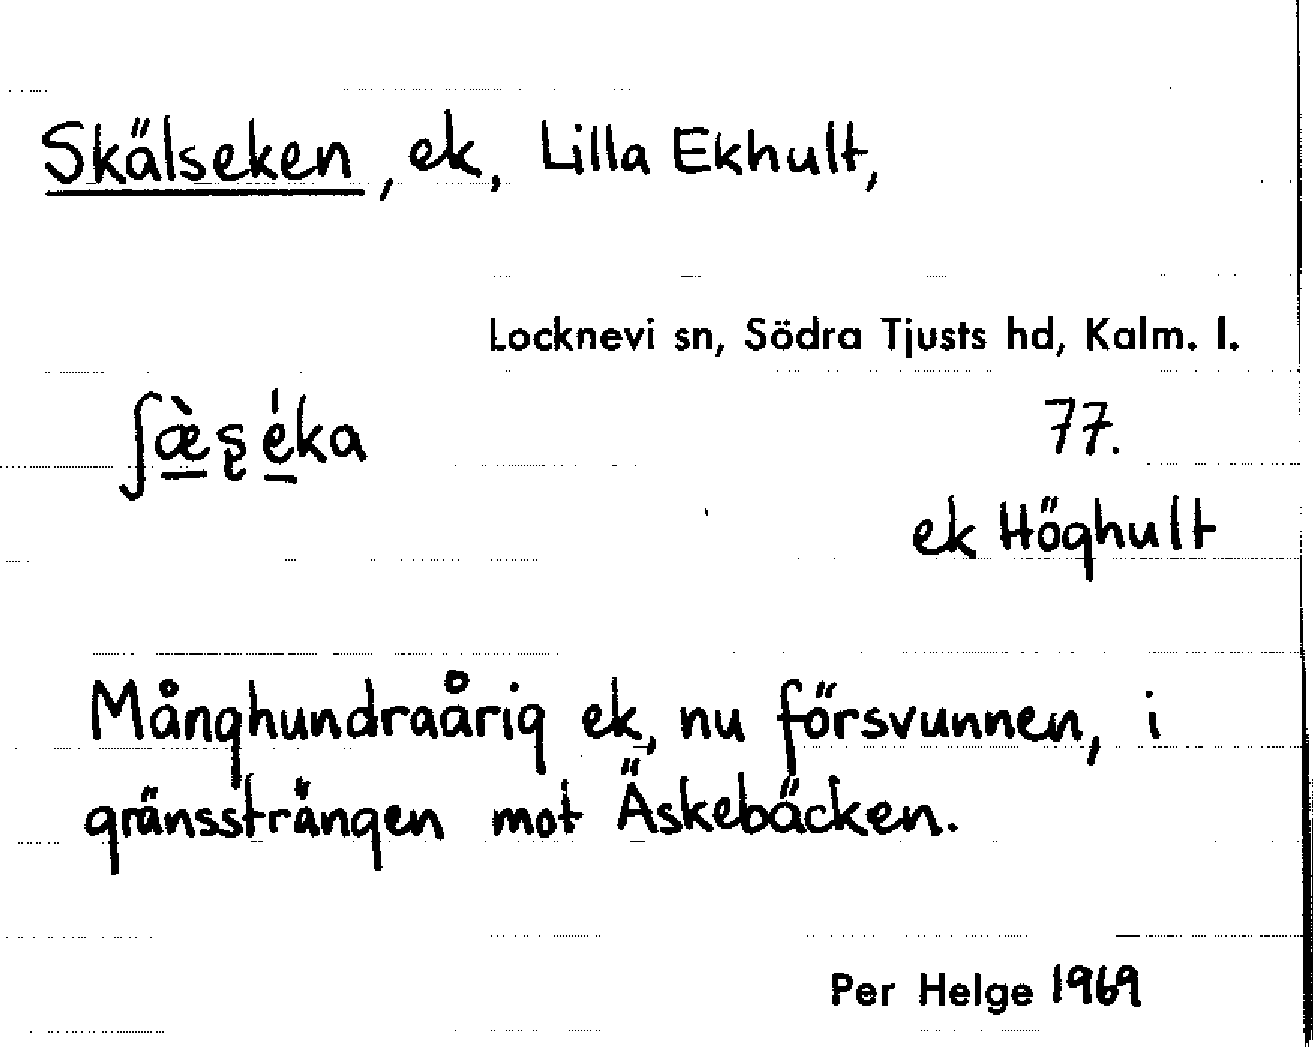 Skälseken, ek, Lilla Ekhult,
Locknevi sn, Södra Tjusts hd, Kalm. l.
ʃæ̱̀ʂ é̱ka
77.
ek Höghult
Månghundraårig ek, nu försvunnen, i
gränssträngen mot Äskebäcken.
Per Helge 1969